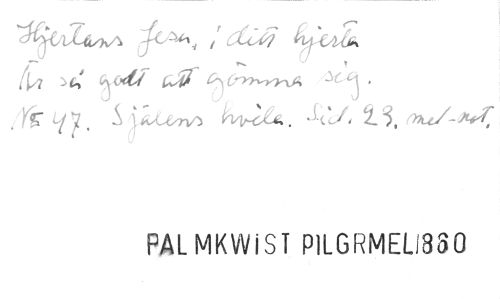 Hjertans Jesu, i ditt hjerta
Är så godt att gömma sig.
No 47. Själens hvila. Sid. 23. mel-not.
PALMKWiST PILGRMEL1860